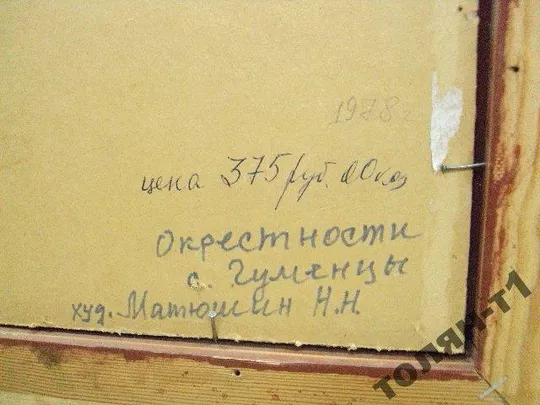 1978 г
цена 375 руб. 00 коп
Окрестности
с. Гуменцы
худ. Матюшин Н.Н.
ТОЛЯН-Т1